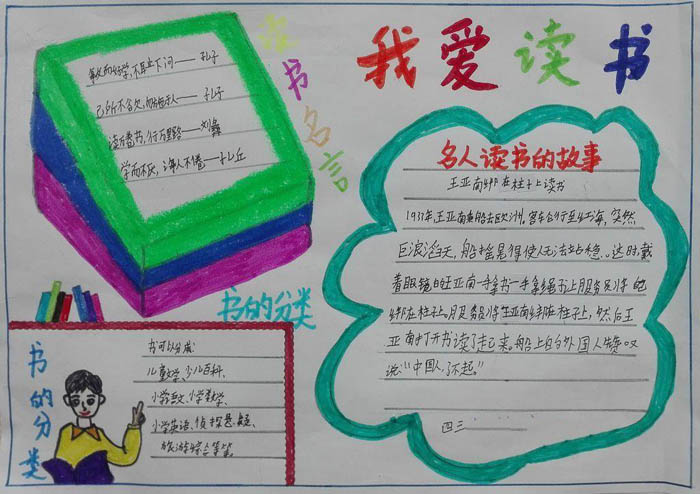 我爱读书
读书名言
敏而好学,不耻下问——孔子
己所不欲,勿施于人——孔子
读万卷书,行万里路——刘彝
学而不厌,诲人不倦——孔丘
书的分类
名人读书的故事
王亚南绑在柱子上读书
1933年王亚南乘船去欧洲。客车行至红海,突然
巨浪滔天,船摇晃得使人无法站稳。这时戴
着眼镜的王亚南一手拿书一手拿绳子上服务员将他
绑在柱子上。服务员将王亚南绑在柱子上,然后王
亚南打开书读了起来。船上的外国人赞叹
说:“中国人,了不起。”
四三
书的分类
书可以分成:
儿童文学、少儿百科、
小学语文、小学数学、
小学英语、侦探悬疑、
旅游综合等等